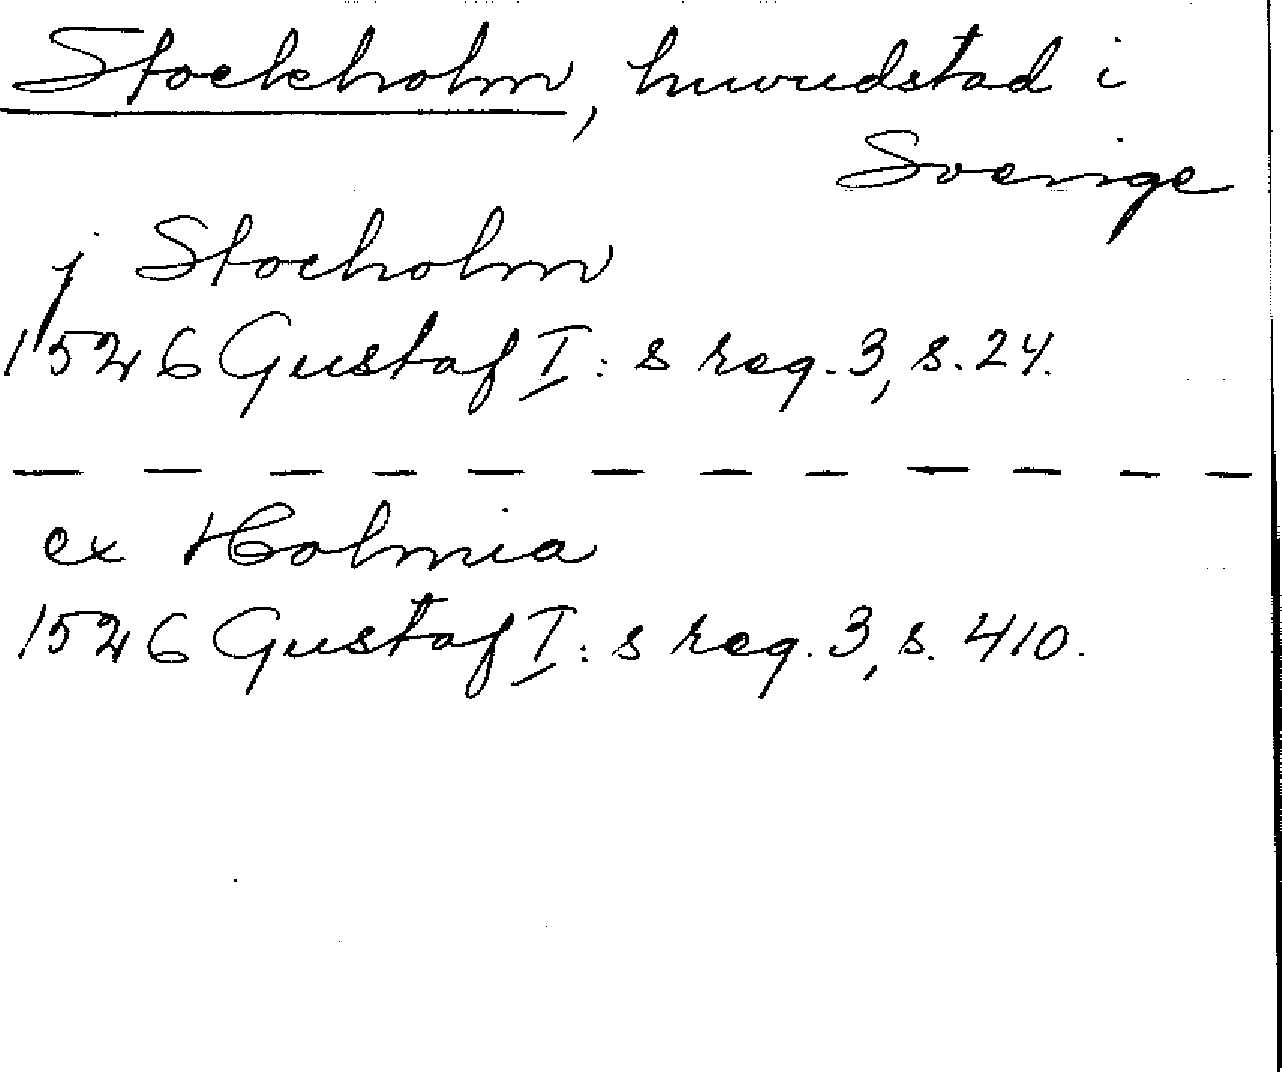 Stockholm, huvudstad i
Sverige
j Stocholm
1526 Gustaf I:s reg. 3, s. 24.
— — — — — — — — — — — —
ex Holmia
1526 Gustaf I:s reg. 3, s. 410.